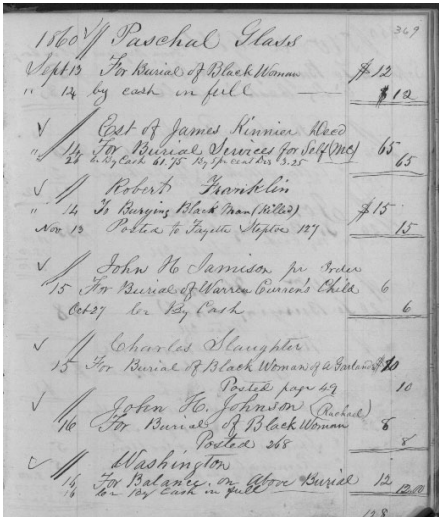 349
1860 Paschal Glass
Sept 13 For Burial of Black Woman $12
" 14 by cash in full $12
Est of James Kinnier Decd
" 14 For Burial Services for Self (MC) 65
28 Cr By Cash 61.75 By 5 pr cent Dis 3.25 65
Robert Franklin
" 14 To Burying Black Man (Killed) $15
Nov 13 Posted to Fayette Steptoe 127 15
John H Jamison pr Order
15 For Burial of Warren Curren's Child 6
Oct 27 Cr By Cash 6
Charles Slaughter
15 For Burial of Black Woman of A Garland $10
Posted page 49 10
John H. Johnson (Rachael)
16 For Burial of Black Woman 8
Posted 268 8
Washington
16 For Balance on Above Burial 12
16 Cr By Cash in full 12.00
128